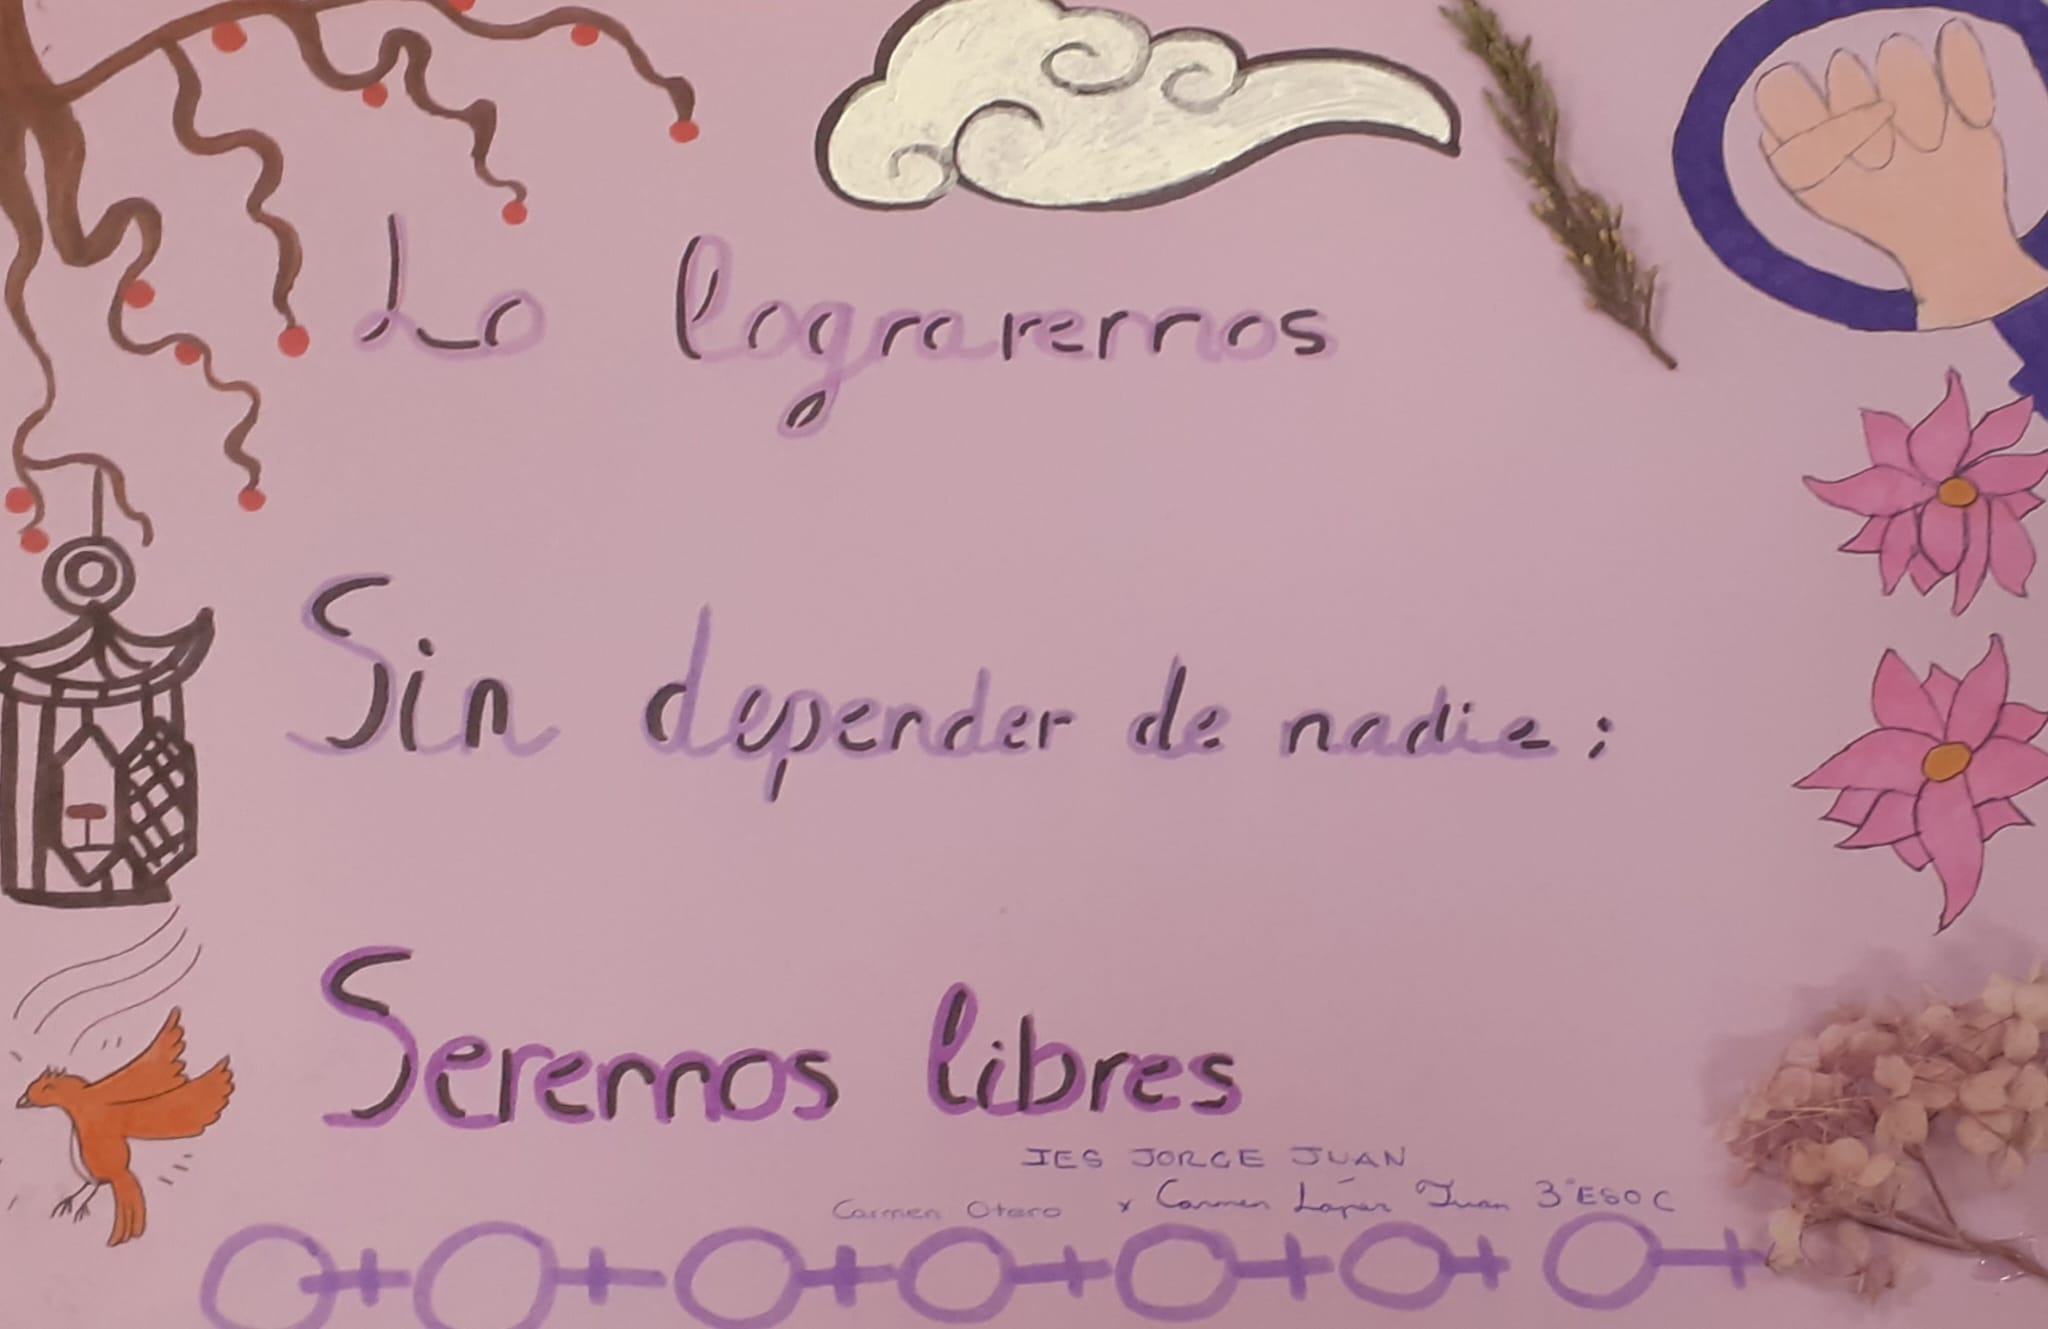 Lo lograremos
Sin depender de nadie:
Seremos libres
IES JORGE JUAN
Carmen Otero y Carmen López Juan 3ºESO C